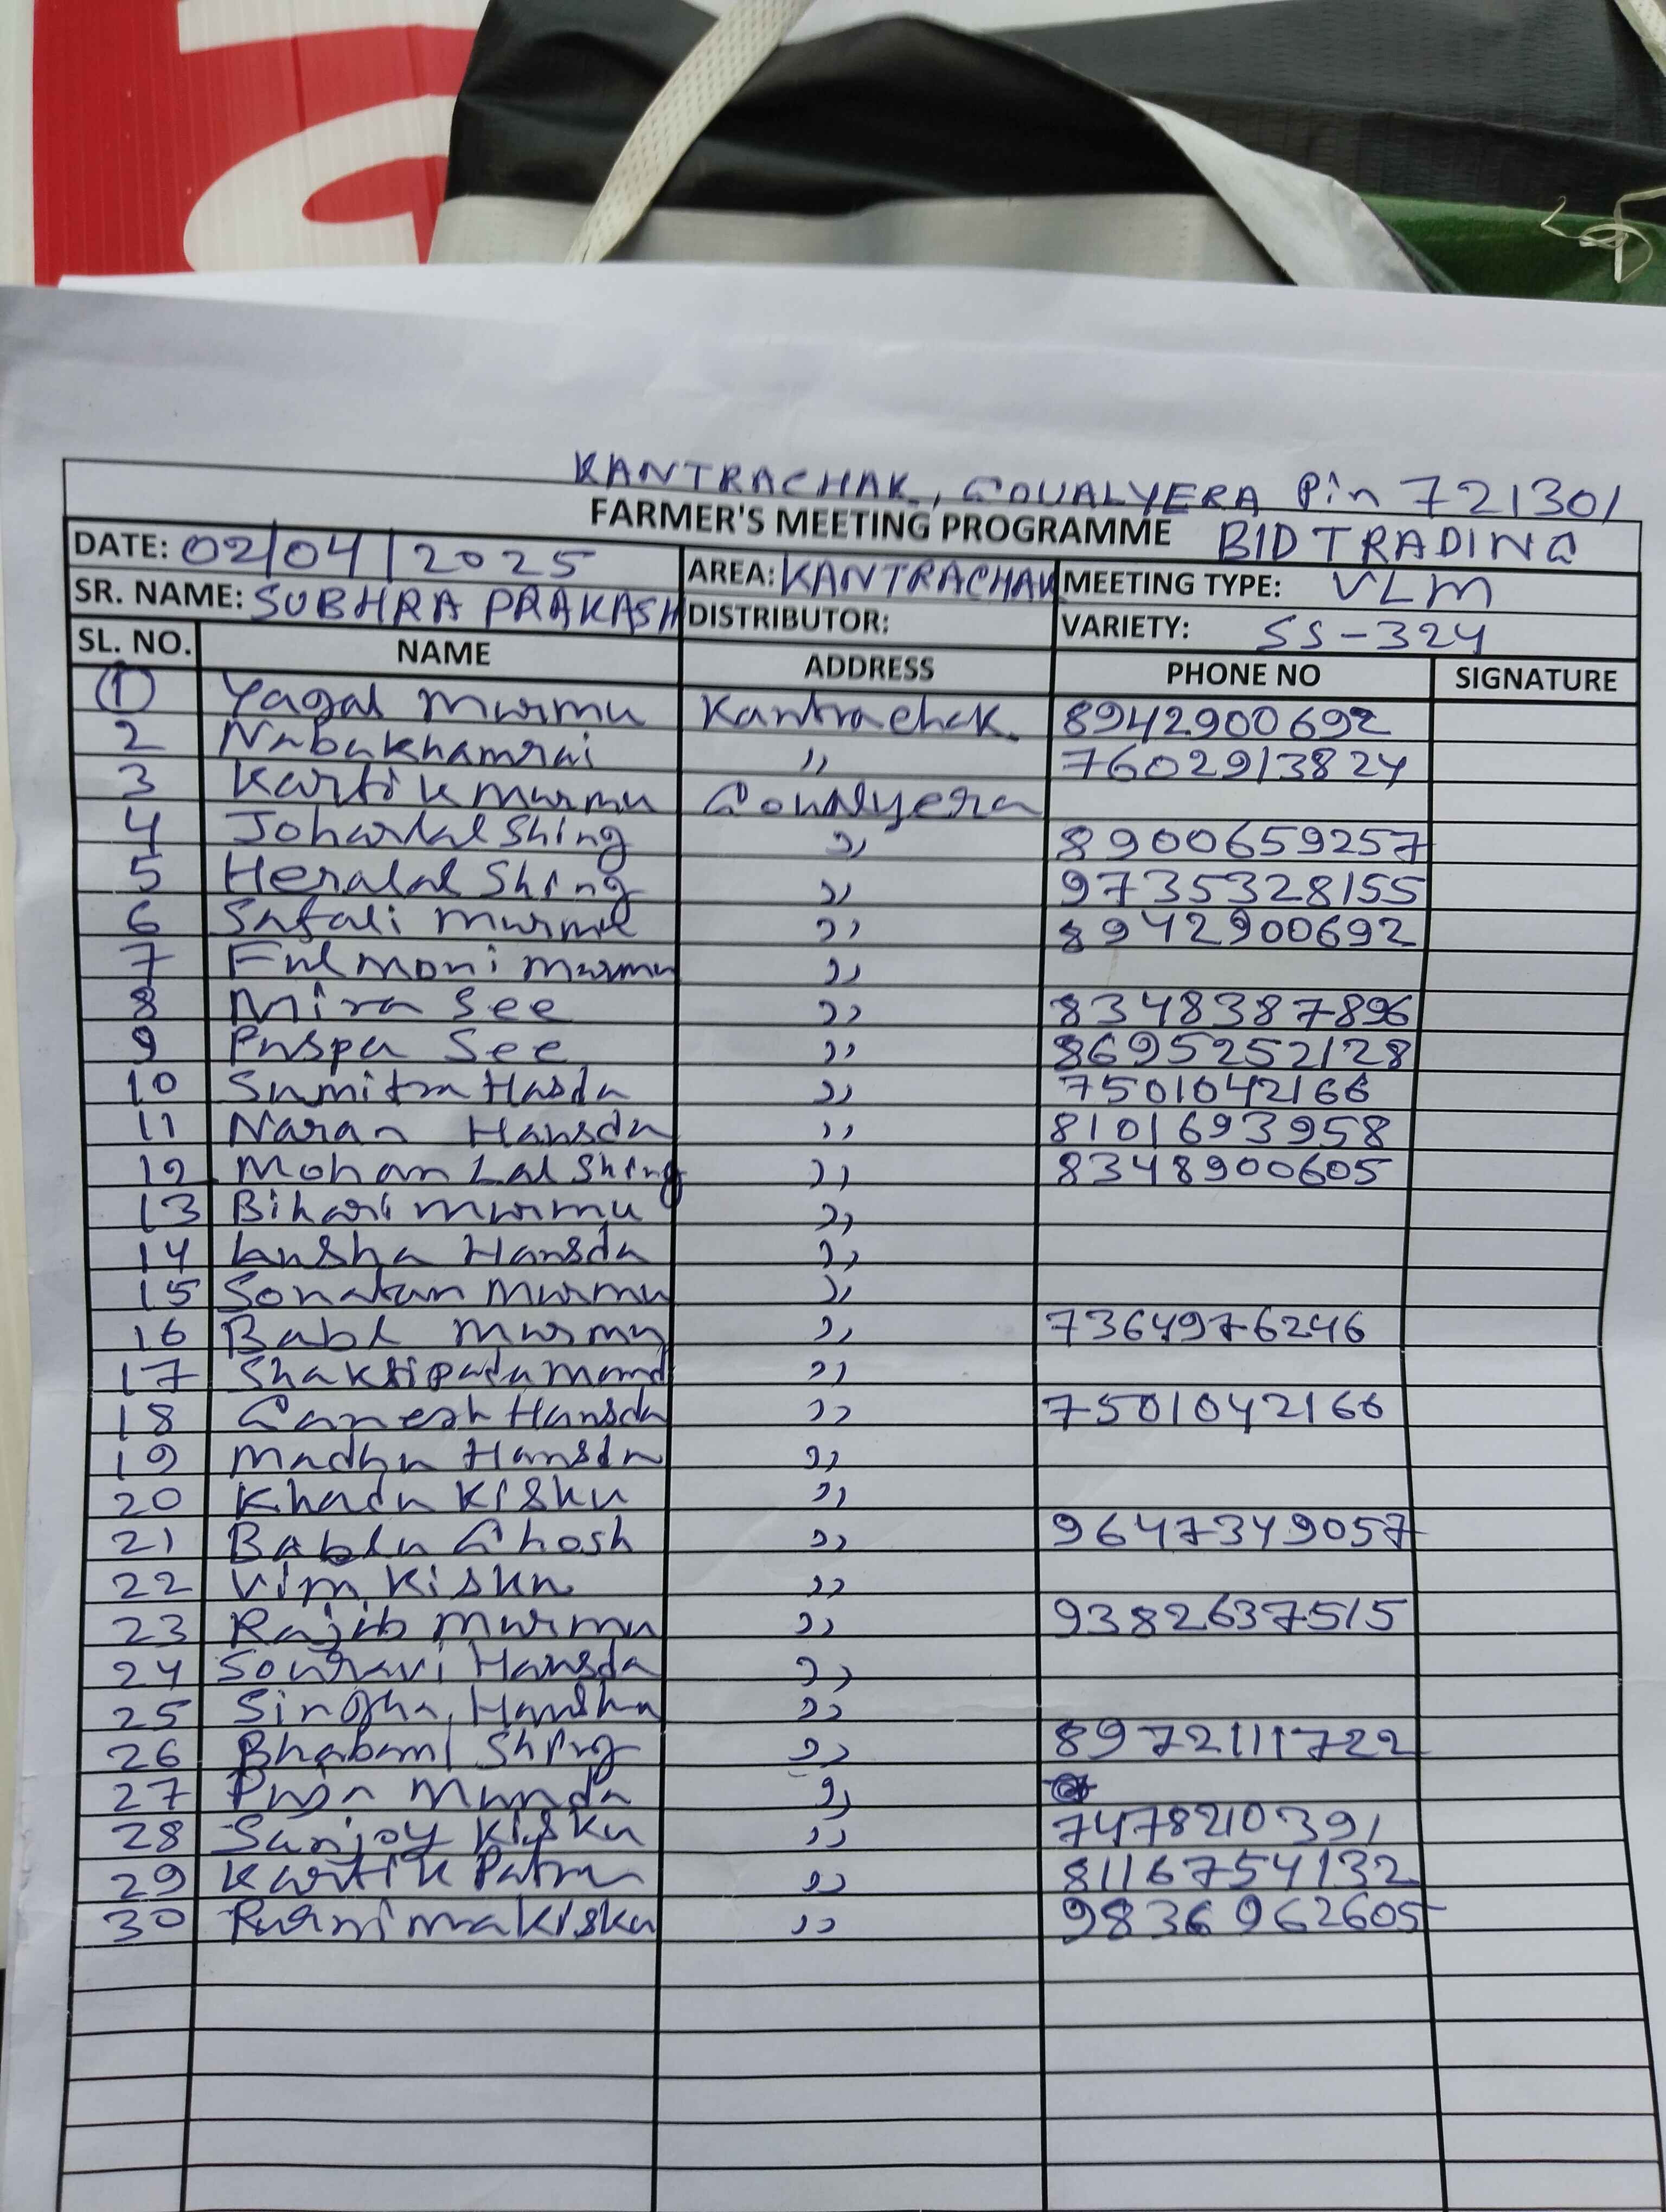 KANTRACHAK, GOUALYERA Pin 721301
FARMER'S MEETING PROGRAMME BID TRADING
DATE: 02/04/2025 AREA: KANTRACHAK MEETING TYPE: VLM
SR. NAME: SUBHRA PRAKASH DISTRIBUTOR: VARIETY: SS-324
SL. NO. NAME ADDRESS PHONE NO SIGNATURE
1 Yagal Murmu Kantrachak. 8942900692
2 Nabakhamrai " 7602913824
3 Kartik Murmu Goualyera
4 Joharlal Shing " 8900659257
5 Heralal Shing " 9735328155
6 Safali Murmu " 8942900692
7 Fulmoni Murmu "
8 Mira See " 8348387896
9 Puspa See " 8695252128
10 Sumitra Hasda " 7501042166
11 Naran Hansda " 8101693958
12 Mohan Lal Shing " 8348900605
13 Bihari Murmu "
14 Hansda "
15 Sonatan Murmu "
16 Babl Murmu " 7364976246
17 Shaktipada "
18 Ganesh Hansda " 7501042166
19 Madhu Hansda "
20 Khadu Kisku "
21 Bablu Ghosh " 9647349057
22 Vim Kisku "
23 Rajib Murmu " 9382637515
24 Souravi Hansda "
25 Singha "
26 Bhabani Shing " 8972111722
27 Munda "
28 Sanjoy Kisku " 7478210391
29 Kartik Patra " 8116754132
30 Purnima Kisku " 9836962605